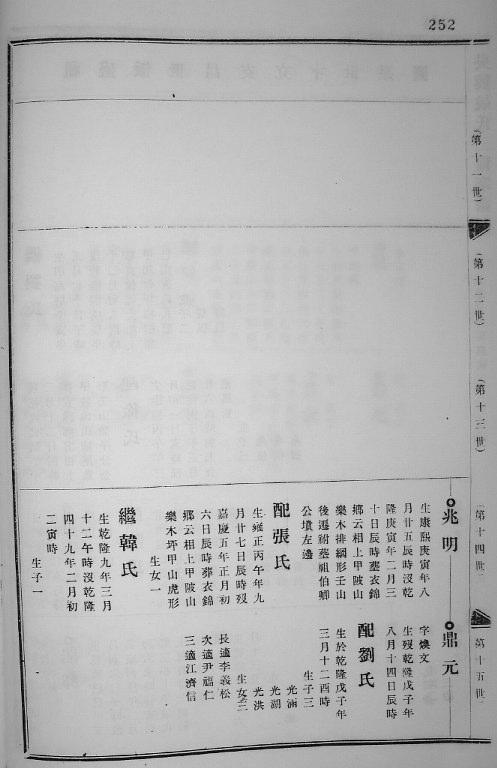 252
(第十一世)
(第十二世)
(第十三世)
(第十四世)
(第十五世)
兆明
生康熙庚寅年八
月廿五辰時沒乾
隆庚寅年二月三
十日辰時葬衣錦
鄉云相上甲陂山
樂木排綱形壬山
後遷祔塟祖伯卿
公墳左邊
配張氏
生雍正丙午年九
月廿七日辰時歿
嘉慶五年正月初
六日辰時葬衣錦
鄉云相上甲陂山
樂木坪甲山虎形
生女一
繼韓氏
生乾隆九年三月
十二午時沒乾隆
四十九年二月初
二寅時
生子一
鼎元
字煥文
生歿乾隆戊子年
八月十四日辰時
配劉氏
生於乾隆戊子年
三月十二酉時
生子三
光湖
光洪
生女三
長適李義松
次適尹福仁
三適江濟信